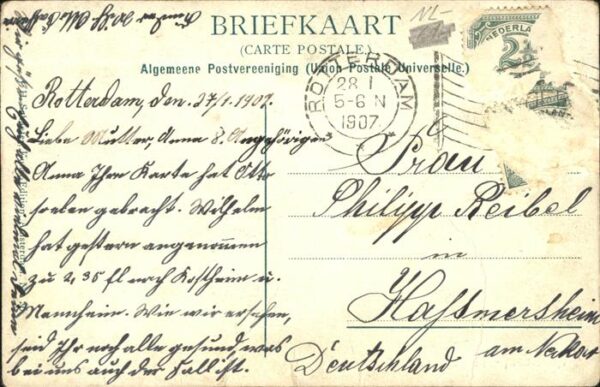 BRIEFKAART
(CARTE POSTALE.)
Algemeene Postvereeniging (Union Postale Universelle.)
NL-
NEDERLA
2½
ROTTERDAM
28 1
5-6 N
1907
Rotterdam, den 27/1. 1907.
Liebe Mutter, Anna & Angehörigen
Anna Ihre Karte hat Otto
soeben gebracht. Wilhelm
hat gestern angenommen
zu 2,35 fl nach Kostheim u.
Mannheim. Wie wir ersehen,
seid Ihr noch alle gesund, was
bei uns auch der Fall ist.
Frau
Philipp Reibel
Hassmersheim
am Neckar
Deutschland